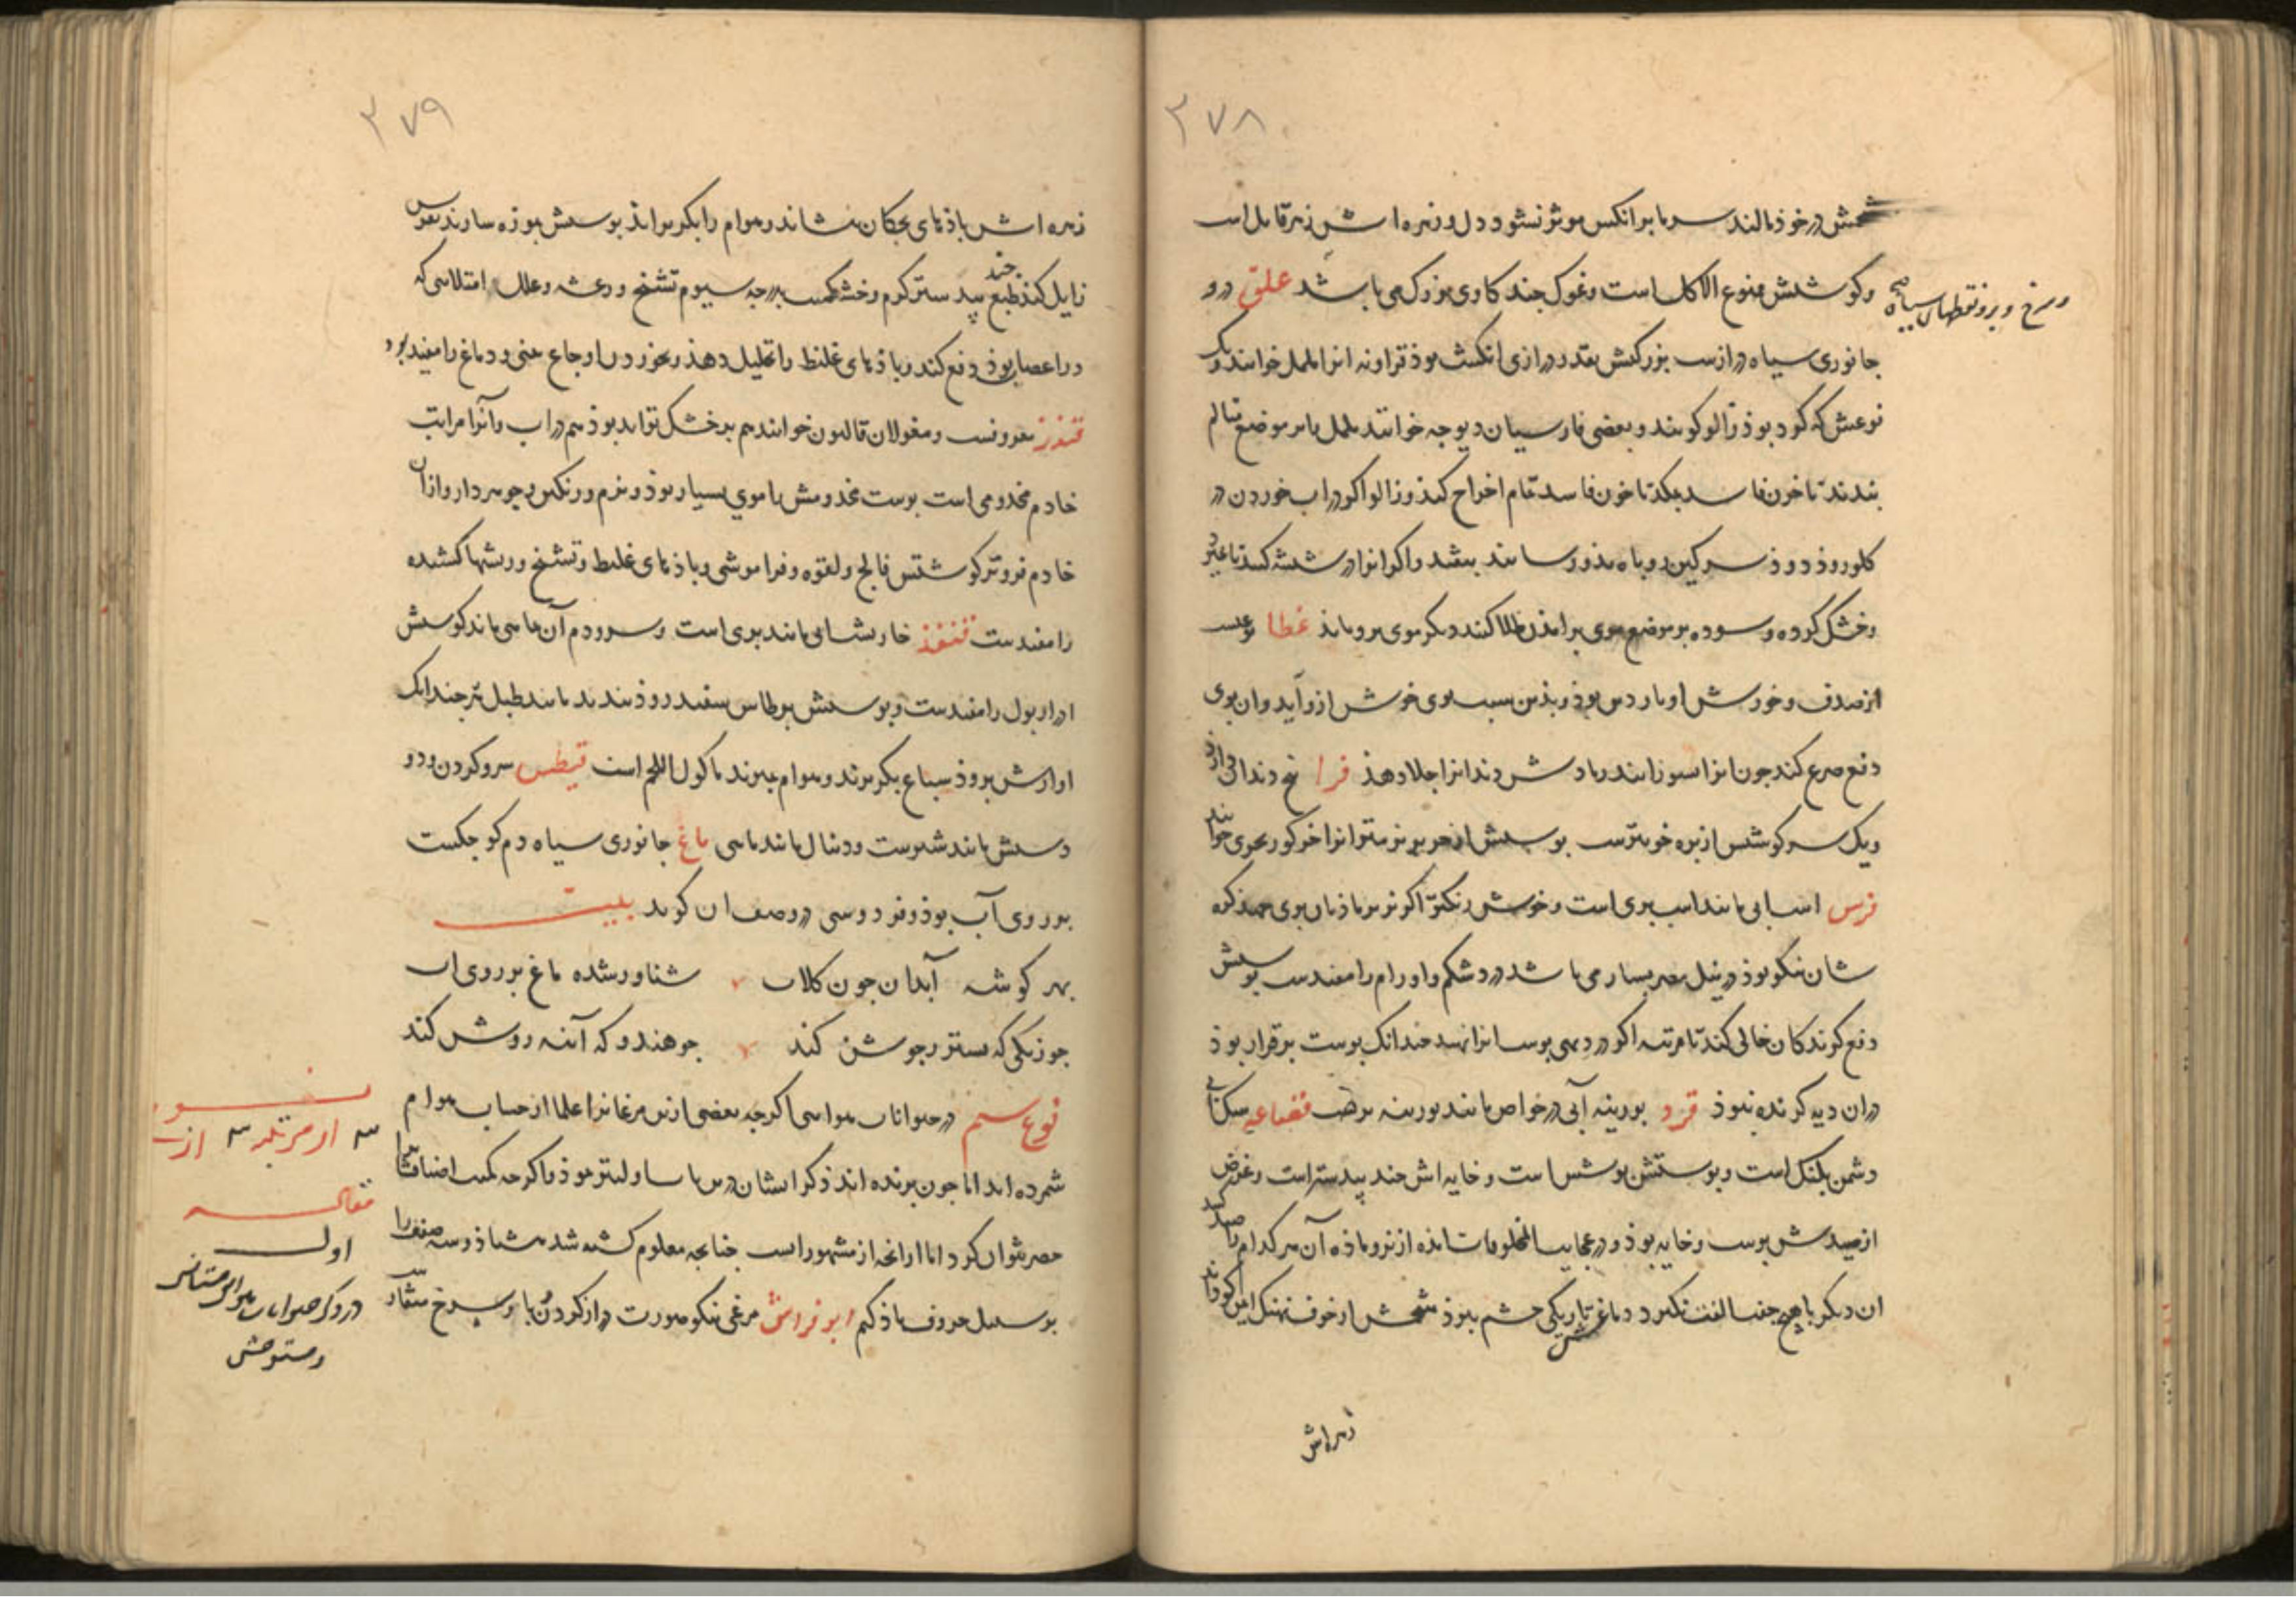 ۲۷۸
شحمش در خوذ مالند سرما بر انکس موثر نشود و دل و زهره اش زهر قاتل است
وکوشتش ممنوع الاکل است وغوک چند کاوی بزرک می باشد علق درو
وسرخ وبرو نقطهای سیاه صح
جانوری سیاه درازست بزرکیش بقدر درازی انکشت بوذ تراونه انرا خوانند و یک
نوعش که کود بوذ زالو کویند وبعضی فارسیان دیوچه خوانند بر موضع تالم
بندند تا خون فاسد بمکد تا خون فاسد تمام اخراج کند وزالو اکر در اب خوردن در
کلو روذ دوذ سرکین روباه بذو رسانند بیفتد واکر انرا در شیشه کنند تا بمیرد
وخشک کرده وسوده بر موضع موی بر امذن طلا کنند دیکر موی برو نیاید غطا نوعیست
از صدف وخورش او ناردین بوذ وبذین سبب بوی خوش ازو آید وان بوی
دفع صرع کند چون انرا بسوزانند رمادش دندانرا جلا دهذ فرا پنج دندان دارذ
ویک سر کوشتش از بره خوبترست پوستش از حریر نرمتر انرا خرکور بحری خوانند
فرس اسبابی مانند اسب بری است وخوش رنکتر اکر نر بر ماذیان بری جهذ کره
شان نیکو بوذ در نیل مصر بسیار می باشد درد شکم واورام را مفیدست پوستش
دفع کزندکان خالی کند تا مرتبه اکر در دیهی پوست انرا نهند چندانک پوست برقرار بوذ
دران دیه کزنده نبوذ قرد بوزینه آبی در خواص مانند بوزینه برهست قضاعه سک آبی
دشمن پلنک است وپوستش پوششی است وخایه اش جند بیدستر است وغرض
از صیدش پوست وخایه بوذ و در عجایب المخلوقات امذه از نر وماذه آن هر کدام را صید کنند
ان دیکر با هیچ جفت الفت نکیرد دماغش تاریکی چشم ببرذ شحمش از خوف نهنک ایمن کرداند
زهراش
۲۷۹
زهره اش باذهای بچکان بنشاند وهوام را بکریزاند پوستش موزه سازند نقرس
زایل کند طبع جند بید ستر کرم وخشکست بدرجه سیوم تشنج ورعشه وعلل امتلایی که
در اعصاب بوذ دفع کند وباذهای غلیظ را تحلیل دهذ وبخوردن اوجاع منی ودماغ را مفید بود
قندز معروفست ومغولان قالیون خوانند هم بر خشک تواند بوذ هم در اب وآنرا مراتب
خادم مخدومی است پوست مخدومش با موی بسیار بوذ ونرم ورنکین وجوهر دار وازان
خادم فروتر کوشتش فالج ولقوه وفراموشی وباذهای غلیظ وتشنج وریشها کشنده
را مفیدست قنفذ خارپشتابی مانند بری است وسر ودم آن ماهی ماند کوشتش
ادرار بول را مفیدست وپوستش بر طاس سفید روذ بندند مانند طبل هر چندانک
اوازش بروذ سباع بکریزند وهوام بمیرند ماکول اللحم است قیطس سر وکردن ودو
دستش مانند شیرست ودنبال مانند ماهی ماغ جانوری سیاه دم کوچکست
بر روی آب بوذ وفردوسی در وصف ان کوید بیت
بهر کوشه آبدان چون کلاب شناور شده ماغ بر روی اب
چو زنکی که بستر ز جوشن کند چو هندو که آینه روشن کند
نوع سیم در حیوانات هوایی اکرچه بعضی ازین مرغانرا علما از حساب هوام
شمرده اند اما چون پرنده اند ذکر ایشان درین باب اولیتر نموذ واکرچه کمیت اصنافش را
حصر نتوان کرد اما ازانچه از مشهور است چنانچه معلوم کشته شد هشتاذ وسه صنف را
بر سبیل حروف یاذ کنیم ابو فراش مرغی نیکو صورت دراز کردن و پا وسرخ منقار
سه از مرتبه سه از
مقاله
اول
در ذکر حیوانات هوایی مستانس
ومستوحش